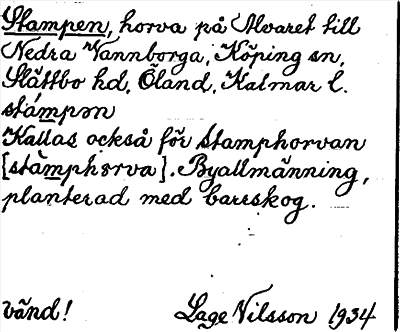 Stampen, horva på Alvaret till
Nedra Vannborga, Köping sn,
Slättbo hd, Öland, Kalmar l.
stámpən
Kallas också för Stamphorvan
[stàmphərva]. Byallmänning,
planterad med barrskog.
vänd! Lage Nilsson 1934